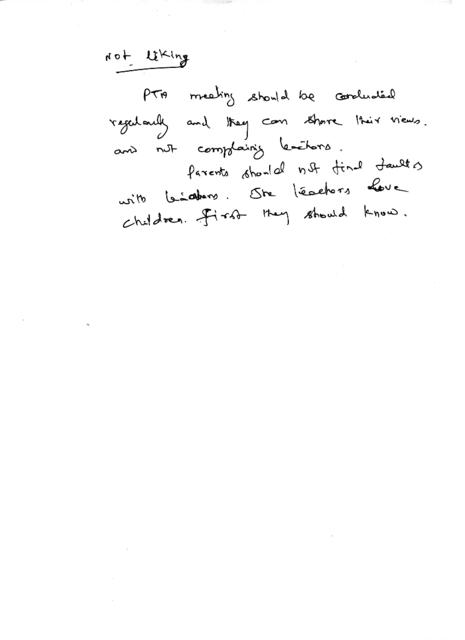 Not liking
PTA meeting should be conducted
regularly and they can share their views.
and not complaining teachers.
Parents should not find faults
with teachers. The teachers love
children. First they should know.